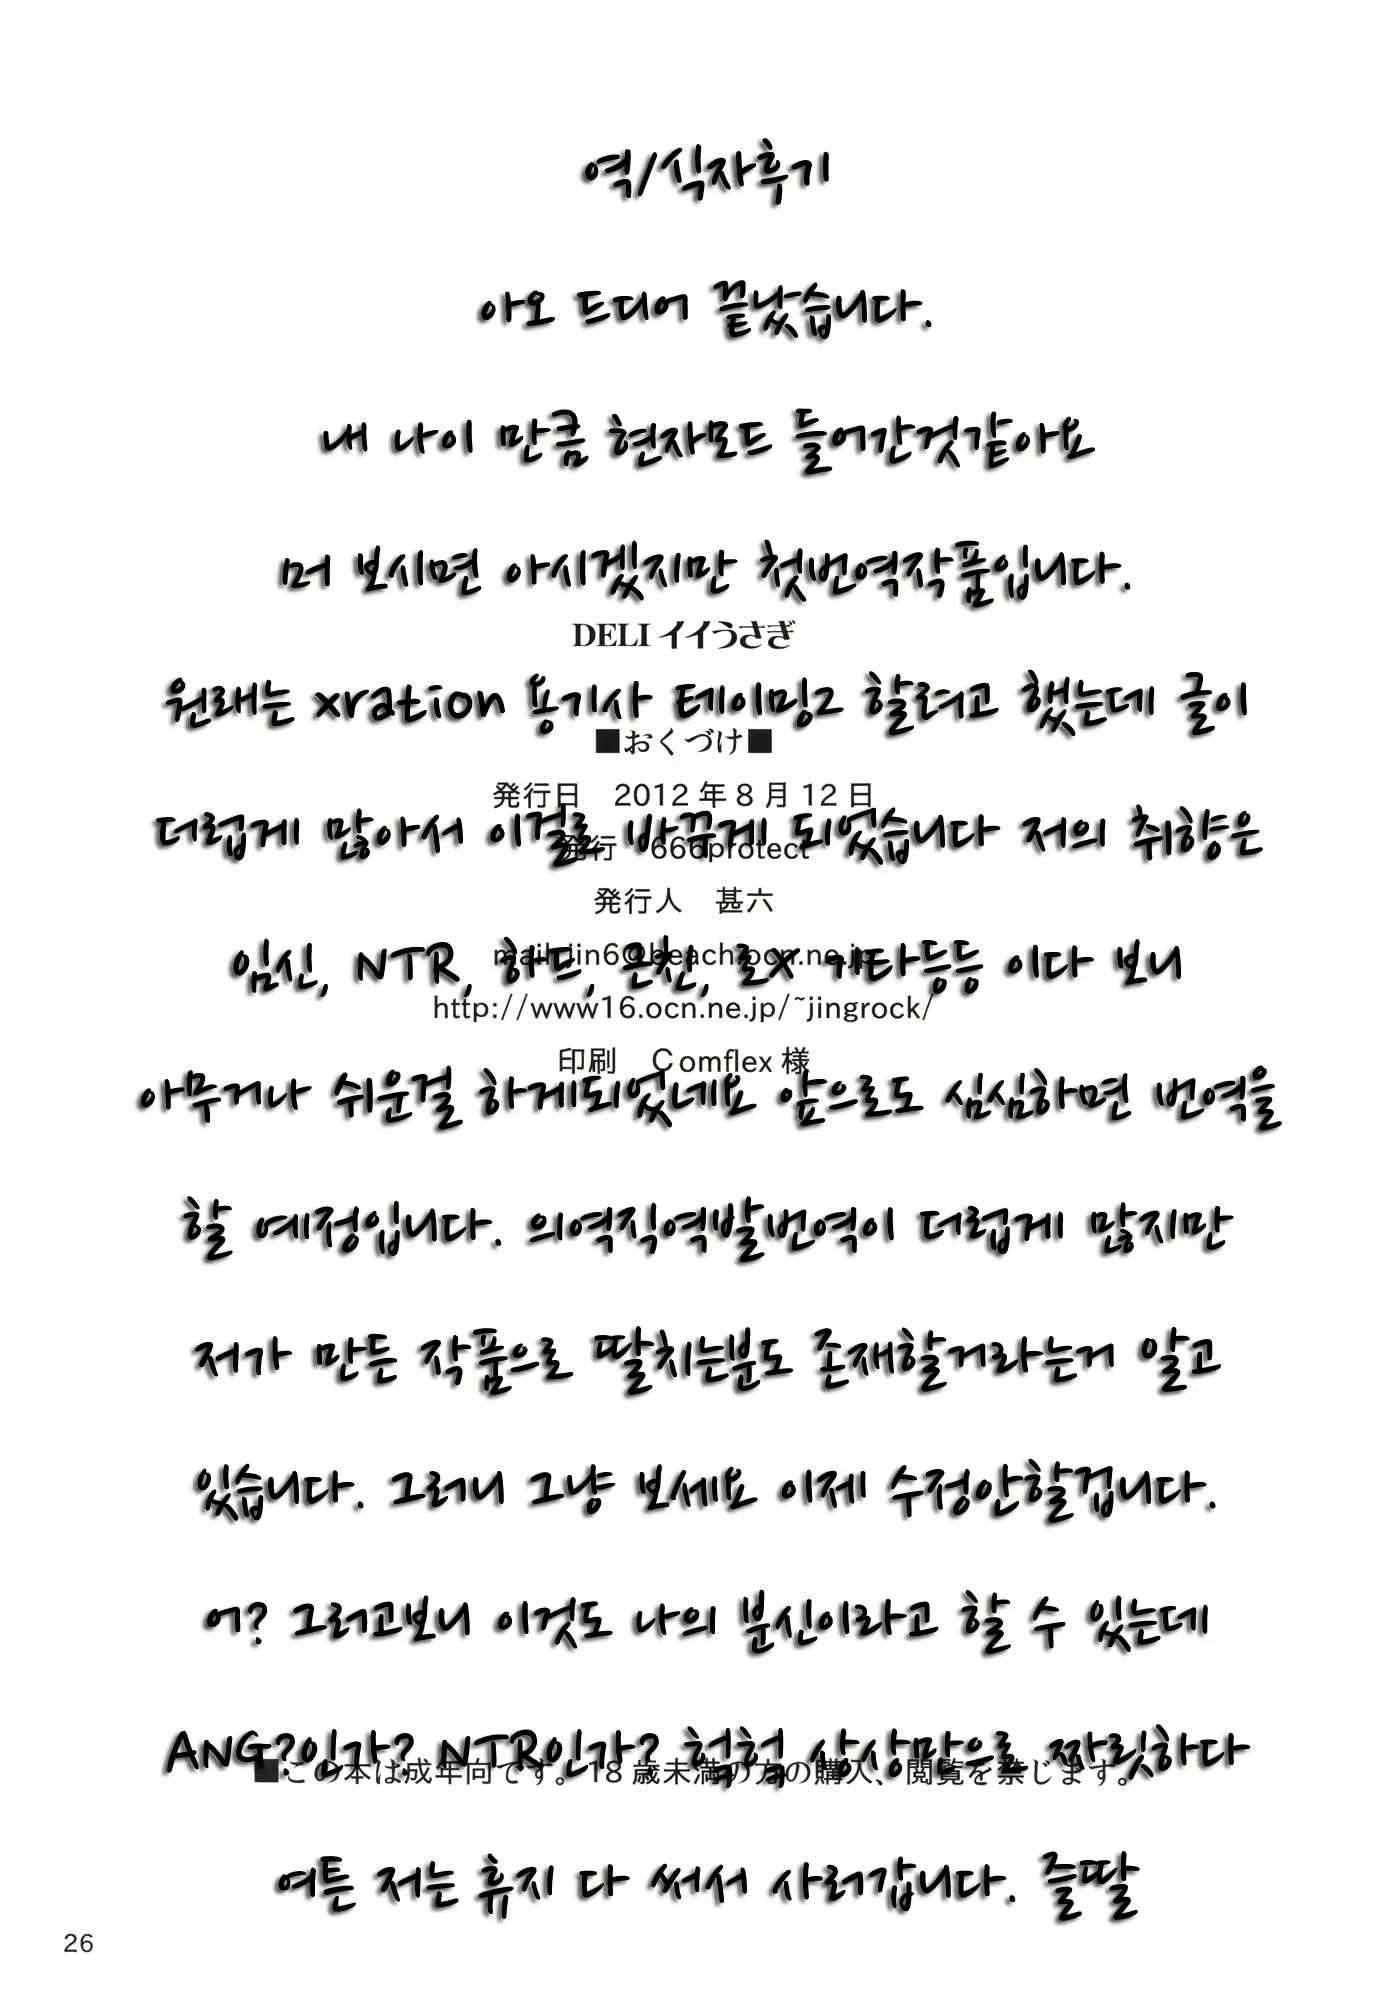 역/식자후기
아오 드디어 끝났습니다.
내 나이 만큼 현자모드 들어간것같아요
머 보시면 아시겠지만 첫번역작품입니다.
DELI イイうさぎ
원래는 xration 용기사 테이밍2 할려고 했는데 글이
■おくづけ■
発行日　2012 年 8 月 12 日
더럽게 많아서 이걸로 바꾸게 되었습니다 저의 취향은
発行　666protect
発行人　甚六
임신, NTR, 하드, 근친, 로X 기타등등 이다 보니
mail:jin6@beach.ocn.ne.jp
http://www16.ocn.ne.jp/~jingrock/
印刷　Comflex 様
아무거나 쉬운걸 하게되었네요 앞으로도 심심하면 번역을
할 예정입니다. 의역직역발번역이 더럽게 많지만
저가 만든 작품으로 딸치는분도 존재할거라는거 알고
있습니다. 그러니 그냥 보세요 이제 수정안할겁니다.
어? 그러고보니 이것도 나의 분신이라고 할 수 있는데
ANG?인가? NTR인가? 헠헠 상상만으로 짜릿하다
■この本は成年向です。18 歳未満の方の購入、閲覧を禁じます。
여튼 저는 휴지 다 써서 사러갑니다. 즐딸
26